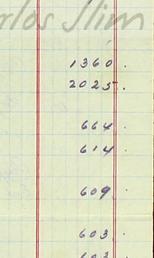 rlos Slim
1360.
2025.
664.
614.
609.
603.